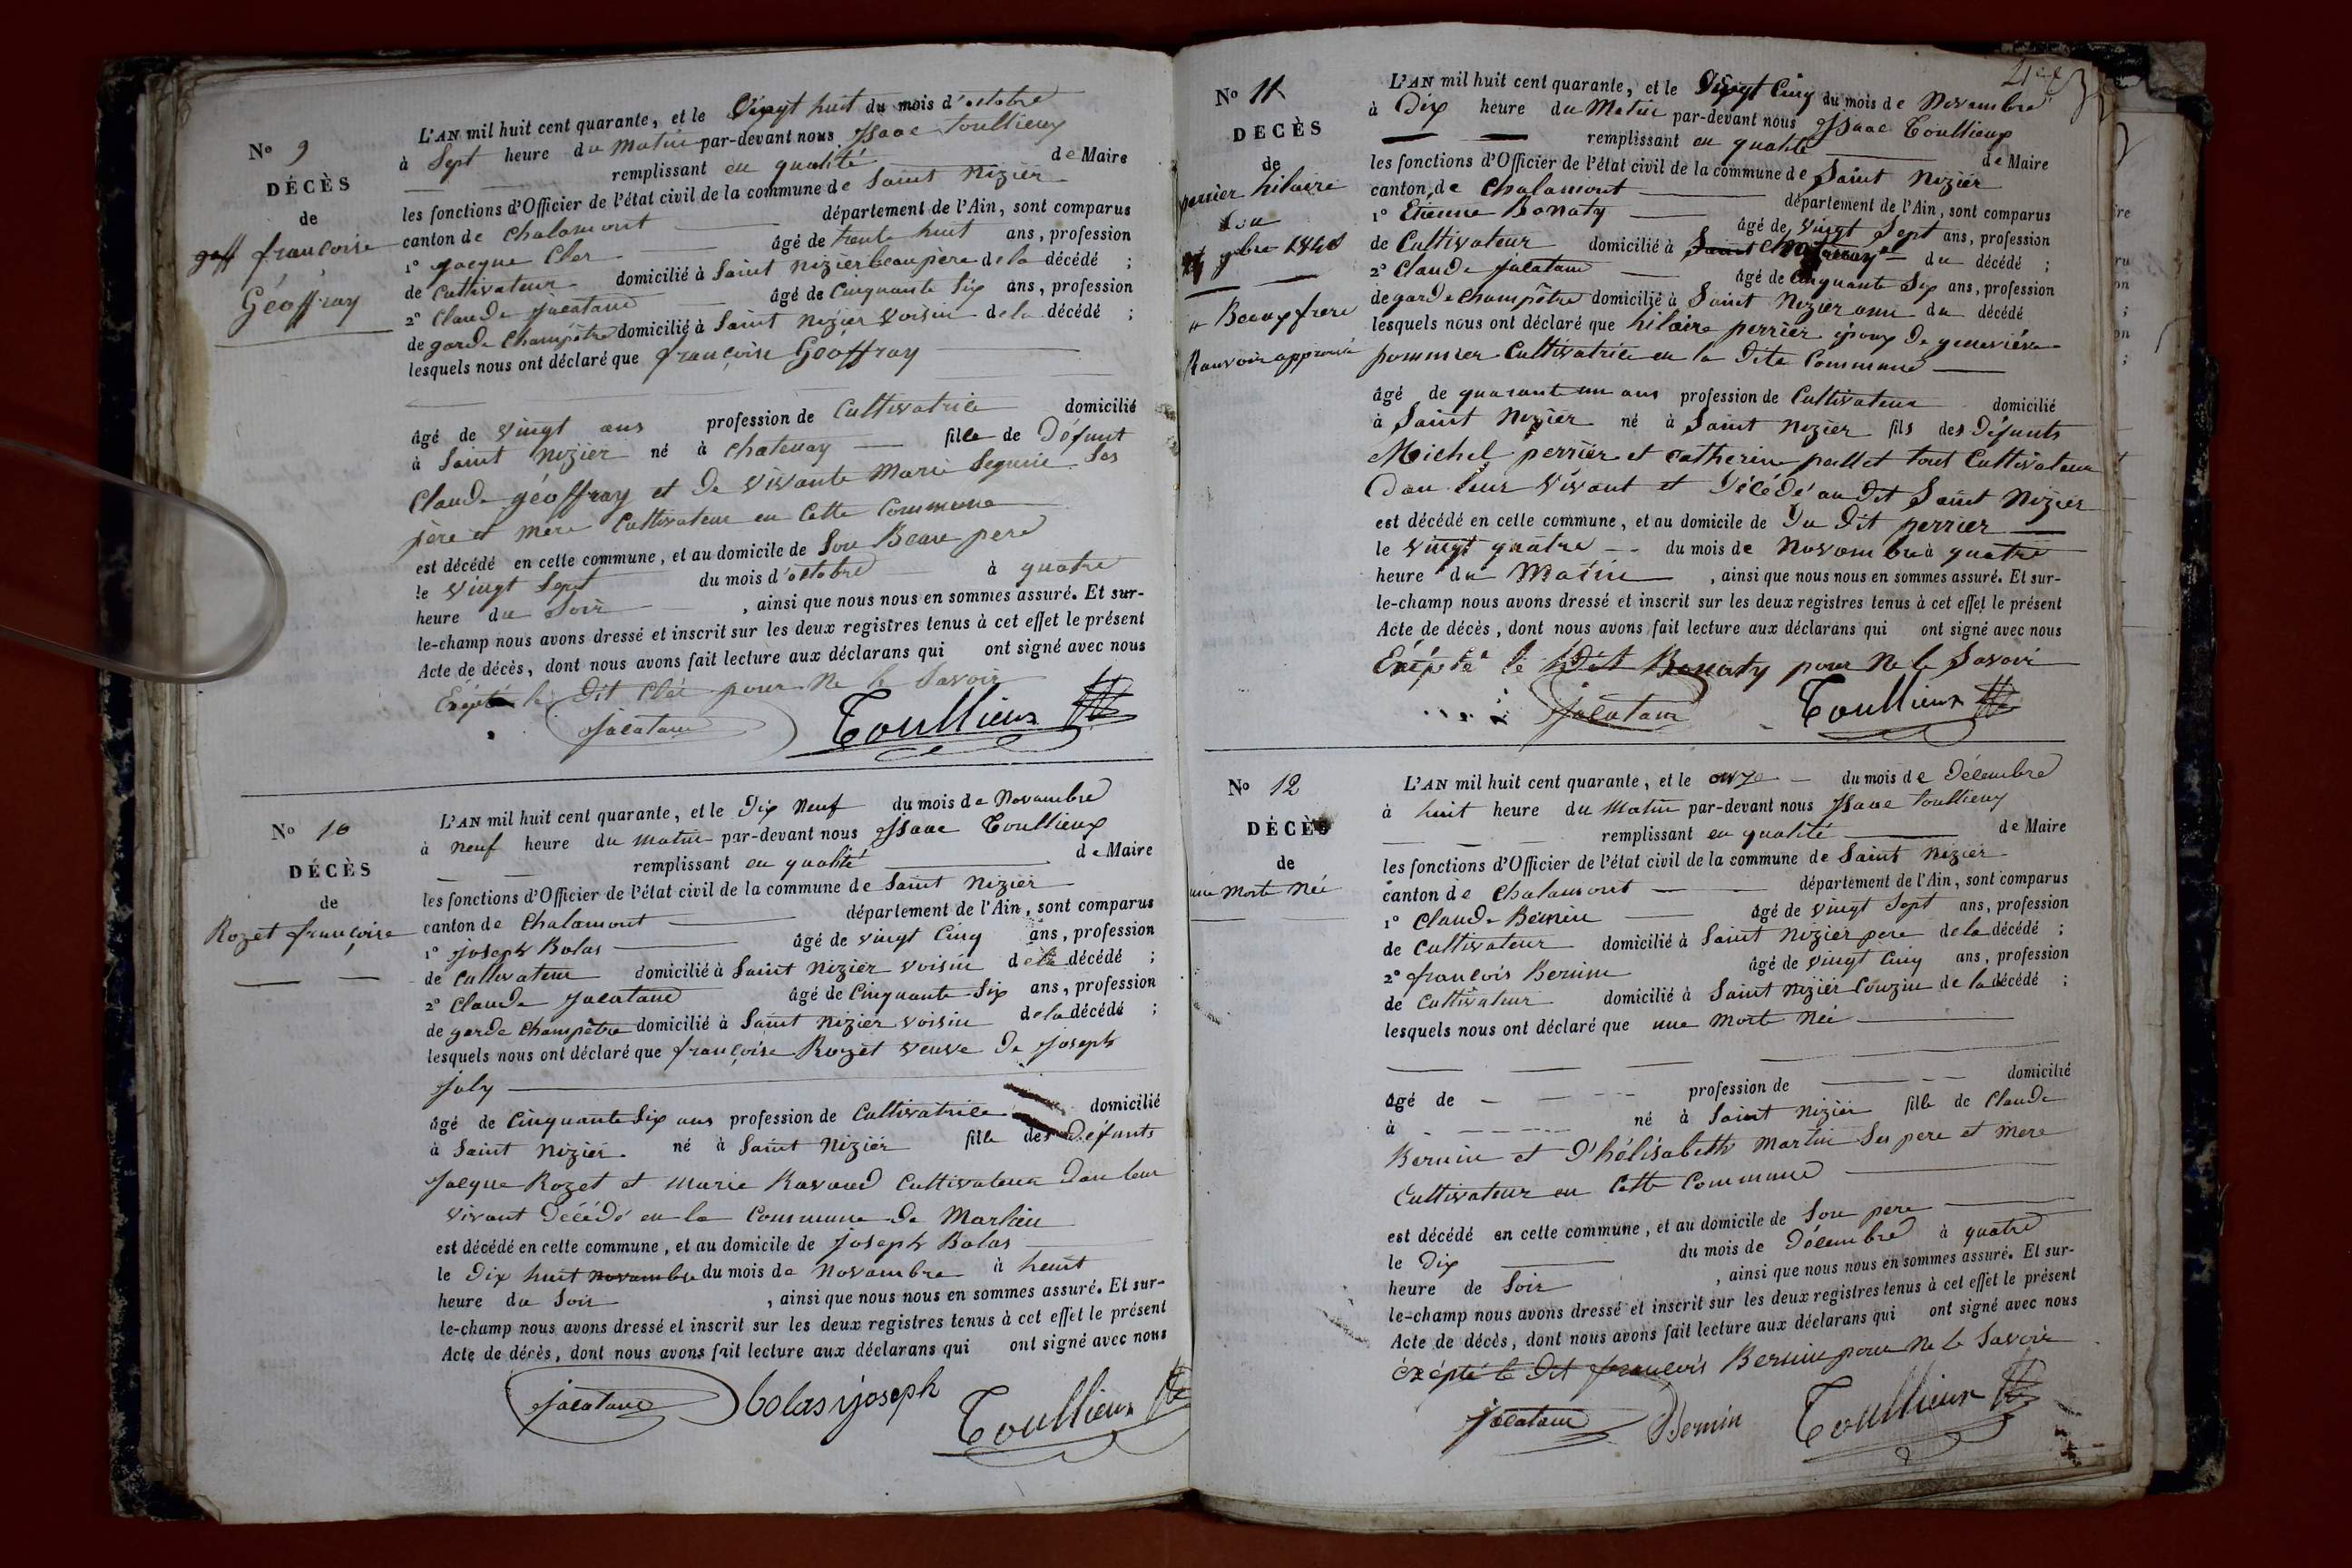 N° 9
DÉCÈS
de
geff françoise
Géoffray
L'AN mil huit cent quarante, et le Vingt huit du mois d'octobre
à Sept heure du matin par-devant nous Isaac Toullieux
remplissant en qualité de Maire
les fonctions d'Officier de l'état civil de la commune de Saint Nizier
canton de Chalamont département de l'Ain, sont comparus
1° Jacque Cler âgé de trente huit ans, profession
de Cultivateur domicilié à Saint Nizier beaupère de la décédé ;
2° Claude Jacatane âgé de Cinquante Six ans, profession
de garde Champêtre domicilié à Saint Nizier Voisin de la décédé ;
lesquels nous ont déclaré que françoise Géoffray
âgé de vingt ans profession de Cultivatrice domicilié
à Saint Nizier né à Chatenay fille de Défunt
Claude géoffray et de vivante Marie Seguin Ses
père et mère Cultivateur en Cette Commune
est décédé en cette commune, et au domicile de Son Beau pere
le vingt Sept du mois d'octobre à quatre
heure du Soir , ainsi que nous nous en sommes assuré. Et sur-
le-champ nous avons dressé et inscrit sur les deux registres tenus à cet effet le présent
Acte de décès, dont nous avons fait lecture aux déclarans qui ont signé avec nous
Exépté le Dit Clér pour Ne le Savoir
Jacatane Toullieux
N° 10
DÉCÈS
de
Rozet françoise
L'AN mil huit cent quarante, et le Dix Neuf du mois de Novembre
à Neuf heure du matin par-devant nous Isaac Toullieux
remplissant en qualité de Maire
les fonctions d'Officier de l'état civil de la commune de Saint Nizier
canton de Chalamont département de l'Ain, sont comparus
1° Joseph Bolas âgé de vingt Cinq ans, profession
de Cultivateur domicilié à Saint Nizier voisin de la décédé ;
2° Claude Jacatane âgé de Cinquante Six ans, profession
de garde Champêtre domicilié à Saint Nizier voisin de la décédé ;
lesquels nous ont déclaré que françoise Rozet veuve de Joseph
Joly
âgé de Cinquante Six ans profession de Cultivatrice domicilié
à Saint Nizier né à Saint Nizier fille des Défunts
Jacque Rozet et Marie Ravaud Cultivateur Dan leur
vivant Décédé en la Commune de Marlieu
est décédé en cette commune, et au domicile de Joseph Bolas
le Dix huit novembre du mois de Novembre à heuit
heure du Soir , ainsi que nous nous en sommes assuré. Et sur-
le-champ nous avons dressé et inscrit sur les deux registres tenus à cet effet le présent
Acte de décès, dont nous avons fait lecture aux déclarans qui ont signé avec nous
Jacatane bolas joseph Toullieux
N° 11
DÉCÈS
de
perrier hilaire
9bre 1840
Beaux frere
approuvé
L'AN mil huit cent quarante, et le Vingt Cinq du mois de Novembre
à Dix heure du Matin par-devant nous Isaac Toullieux
remplissant en qualité de Maire
les fonctions d'Officier de l'état civil de la commune de Saint Nizier
canton de Chalamont département de l'Ain, sont comparus
1° Etienne Bonaty âgé de vingt Sept ans, profession
de Cultivateur domicilié à Saint du décédé ;
2° Claude Jacatane âgé de Cinquante Six ans, profession
de garde Champêtre domicilié à Saint Nizier ami du décédé
lesquels nous ont déclaré que hilaire perrier époux de genevieve
pommier Cultivatrice en la Dite Commune
âgé de quarante un ans profession de Cultivateur domicilié
à Saint Nizier né à Saint Nizier fils des Défunts
Michel perrier et catherine pallet tout Cultivateur
Dan leur Vivant et Décédé au Dit Saint Nizier
est décédé en cette commune, et au domicile de Du Dit perrier
le vingt quatre du mois de Novembre à quatre
heure du Matin , ainsi que nous nous en sommes assuré. Et sur-
le-champ nous avons dressé et inscrit sur les deux registres tenus à cet effet le présent
Acte de décès, dont nous avons fait lecture aux déclarans qui ont signé avec nous
Exépté le Dit Bonaty pour Ne le Savoir
Jacatane Toullieux
N° 12
DÉCÈS
de
une Morte Née
L'AN mil huit cent quarante, et le onze du mois de Décembre
à huit heure du Matin par-devant nous Isaac Toullieux
remplissant en qualité de Maire
les fonctions d'Officier de l'état civil de la commune de Saint Nizier
canton de Chalamont département de l'Ain, sont comparus
1° Claude Bernin âgé de vingt Sept ans, profession
de Cultivateur domicilié à Saint Nizier pere de la décédé ;
2° françois Bernin âgé de vingt Cinq ans, profession
de Cultivateur domicilié à Saint Nizier Couzin de la décédé ;
lesquels nous ont déclaré que une Morte Née
âgé de profession de domicilié
à né à Saint Nizier fille de Claude
Bernin et D'hélisabeth Martin Ses pere et mere
Cultivateur en Cette Commune
est décédé en cette commune, et au domicile de Son pere
le Dix du mois de Décembre à quatre
heure de Soir , ainsi que nous nous en sommes assuré. Et sur-
le-champ nous avons dressé et inscrit sur les deux registres tenus à cet effet le présent
Acte de décès, dont nous avons fait lecture aux déclarans qui ont signé avec nous
éxépté le Dit françois Bernin pour Ne le Savoir
Jacatane Bernin Toullieux